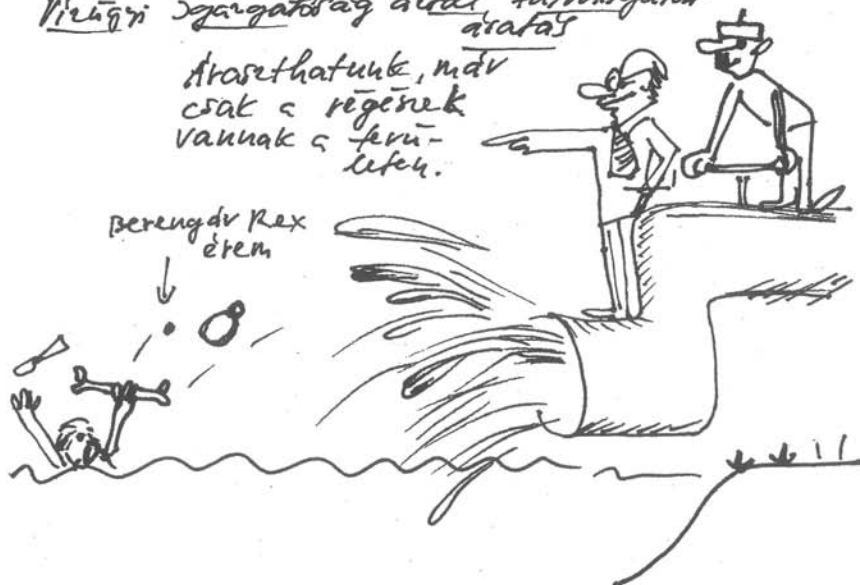 Vízügyi Igazgatóság által
áratás
Áraszthatunk, már
csak a régészek
vannak a terü-
leten.
Berengár Rex
érem